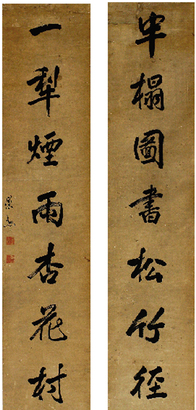 半榻圖書松竹徑
一犁煙雨杏花村